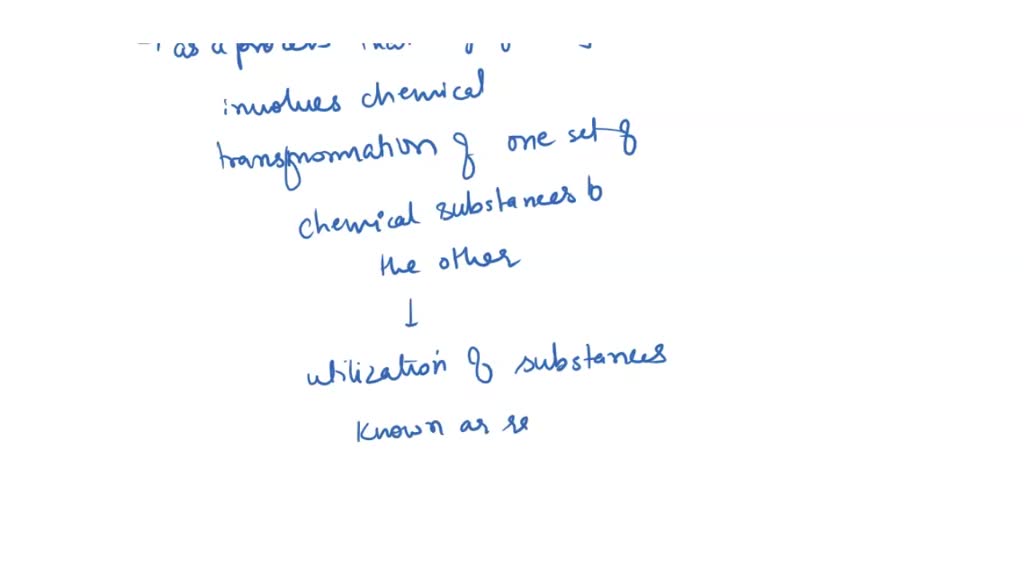 as a process
involves chemical
transformation of one set of
chemical substances to
the other
↓
utilization of substances
known as re